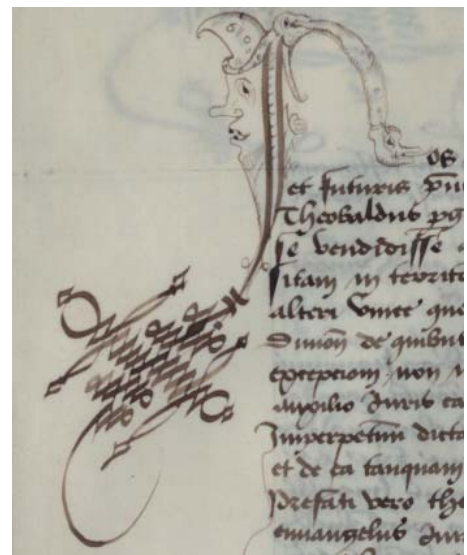 Nos
et futuris
Theobaldus
se vendidisse
sitam in territo
alteri vinee que
de quibus
non
auxilio Juris ca
Imperpetuum dicta
et de ea tanquam
prefati vero the
euuangelus Jur